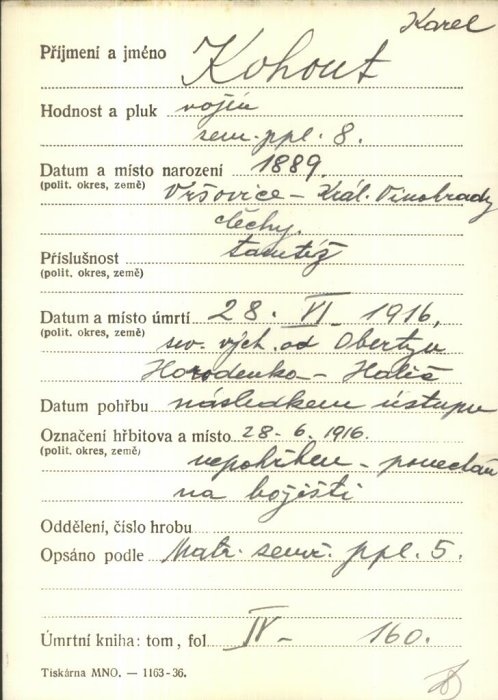 Karel
Příjmení a jméno Kohout
Hodnost a pluk vojín
zem. ppl. 8.
Datum a místo narození 1889.
(polit. okres, země) Vršovice - Král. Vinohrady
Čechy.
Příslušnost tamtéž
(polit. okres, země)
Datum a místo úmrtí 28. VI. 1916,
(polit. okres, země) sev. vých. od Obertynu
Horodenko - Halič
Datum pohřbu následkem ústupu
Označení hřbitova a místo 28-6. 1916.
(polit. okres, země) nepohřben - ponechán
na bojišti
Oddělení, číslo hrobu
Opsáno podle Matr. zeměř. ppl. 5.
Úmrtní kniha: tom, fol IV - 160.
Tiskárna MNO. — 1163-36.